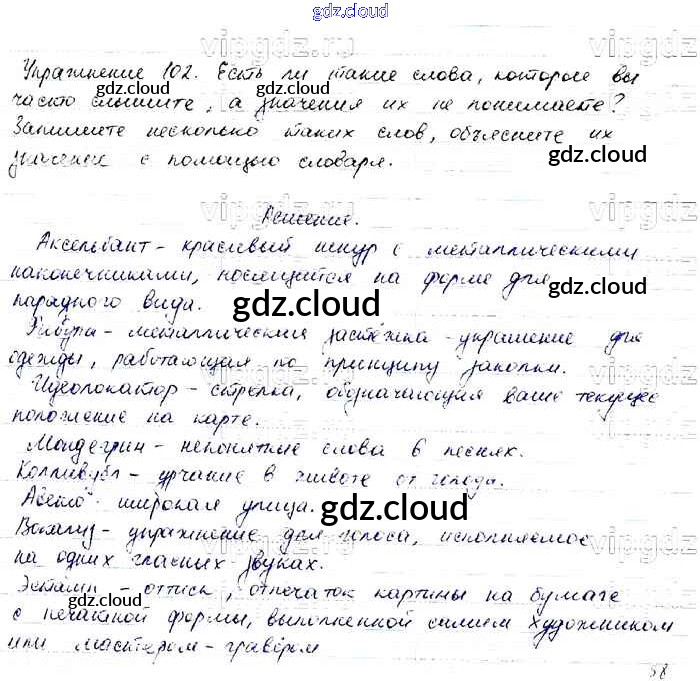 gdz.cloud
Упражнение 102. Есть ли такие слова, которые вы
часто слышите, а значения их не понимаете?
Запишите несколько таких слов, объясните их
значение с помощью словаря.
Решение.
Аксельбант - красивый шнур с металлическими
наконечниками, носящийся на форме для
парадного вида.
Фибула - металлическая застёжка - украшение для
одежды, работающая по принципу заколки.
Идеолокатор - стрелка, обозначающая ваше текущее
положение на карте.
Мондегрин - непонятные слова в песнях.
Колливубл - урчание в животе от голода.
Авеню - широкая улица.
Вокализ - упражнение для голоса, исполняемое
на одних гласных звуках.
Эстамп - оттиск, отпечаток картины на бумаге
с печатной формы, выполненной самим художником
или мастером - гравёром
58